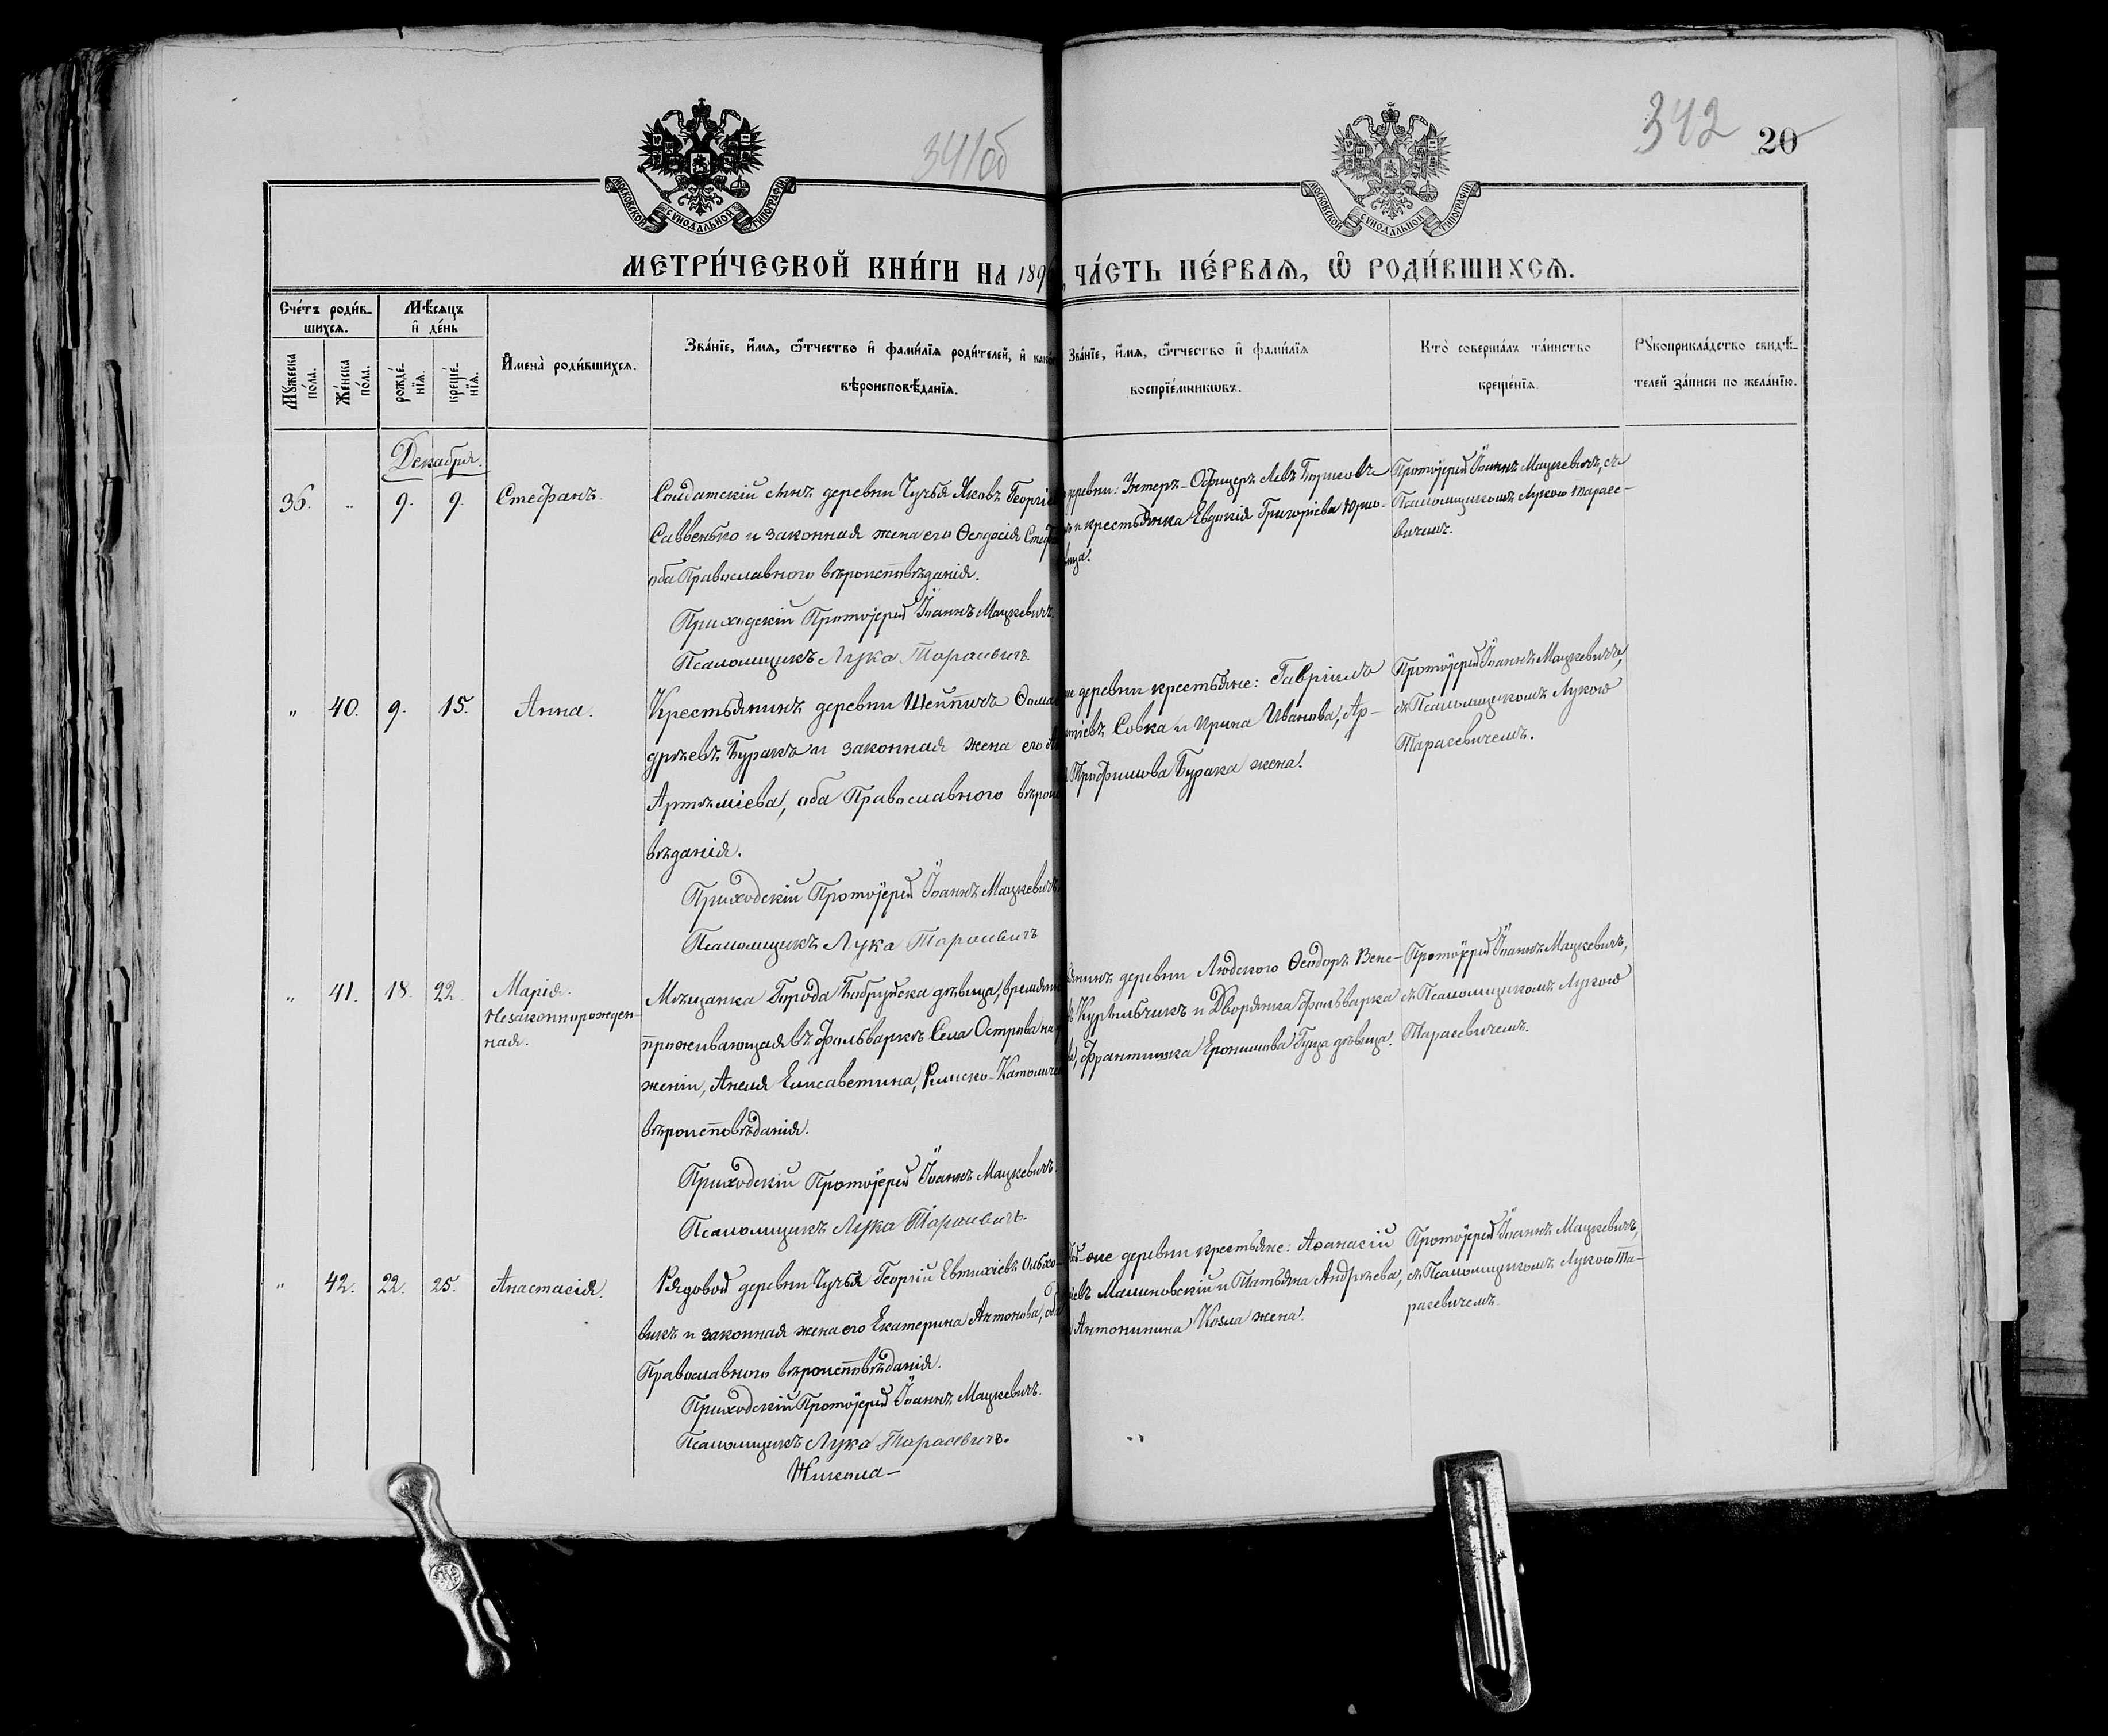 341об
342 20
МОСКОВСКОЙ СѴНОДАЛЬНОЙ ТИПОГРАФІИ
МОСКОВСКОЙ СѴНОДАЛЬНОЙ ТИПОГРАФІИ
МЕТРИ́ЧЕСКОЙ КНИ́ГИ НА 189
ЧА́СТЬ ПЕ́РВАѦ, Ѿ РОДИ́ВШИХСѦ.
Счéтъ роди́в-
шихсѧ.
Мѣ́сѧцъ
и҆ дéнь
Мꙋ́жеска
пóла.
Жéнска
пóла.
рождé-
нїѧ.
крещé-
нїѧ.
И҆мена̀ роди́вшихсѧ.
Зва́нїе, и҆́мѧ, ѻ҆́тчество и҆ фами́лїѧ роди́телей, и҆
вѣроисповѣ́данїѧ.
Зва́нїе, и҆́мѧ, ѻ҆́тчество и҆ фами́лїѧ
воспрїе́мникѡвъ.
Кто̀ соверша́лъ та́инство
креще́нїѧ.
Рꙋкоприкла́дство свидѣ́-
телей за́писи по жела́нїю.
Декабря.
36. „ 9. 9. Стефанъ.
Солдатскій сынъ деревни Чучья Яковъ
Саввенько и законная жена его Ѳеодосія
оба Православнаго вѣроисповѣданія.
Приходскій Протоіерей Іоаннъ Мацкевичъ.
Псаломщикъ Лука Тарасевичъ
деревни: Унтеръ-Офицеръ Левъ Борисовъ
и крестьянка Евдокія Григоріева
Протоіерей Іоаннъ Мацкевичъ, съ
Псаломщикомъ Лукою Тарасе-
вичемъ.
„ 40. 9. 15. Анна.
Крестьянинъ деревни
дреевъ Буракъ и законная жена его
Артеміева, оба Православнаго
вѣданія.
Приходскій Протоіерей Іоаннъ Мацкевичъ
Псаломщикъ Лука Тарасевичъ
деревни крестьяне: Гавріилъ
Совка и Ирина Иванова, Ар-
Трофимова Бурака жена.
Протоіерей Іоаннъ Мацкевичъ,
съ Псаломщикомъ Лукою
Тарасевичемъ.
„ 41. 18. 22. Марія.
Незаконнорожден-
ная.
Мѣщанка Города Бобруйска дѣвица,
проживающая въ фольваркѣ Села Острова
женіи, Анеля Елисаветина, Римско-
вѣроисповѣданія.
Приходскій Протоіерей Іоаннъ Мацкевичъ.
Псаломщикъ Лука Тарасевичъ.
деревни Людского Ѳеодоръ
Курильчикъ и Дворянка фольварка
Франтишка Еронимова Гуща дѣвица.
Протоіерей Іоаннъ Мацкевичъ,
съ Псаломщикомъ Лукою
Тарасевичемъ.
„ 42. 22. 25. Анастасія.
Рядовой деревни Чучья Георгій Евтихіевъ Ольхо-
викъ и законная жена его Екатерина Антонова,
Православнаго вѣроисповѣданія.
Приходскій Протоіерей Іоаннъ Мацкевичъ.
Псаломщикъ Лука Тарасевичъ.
деревни крестьяне: Аѳанасій
Малиновскій и Татьяна Андреева,
Антонинина Козла жена.
Протоіерей Іоаннъ Мацкевичъ,
съ Псаломщикомъ Лукою Та-
расевичемъ.